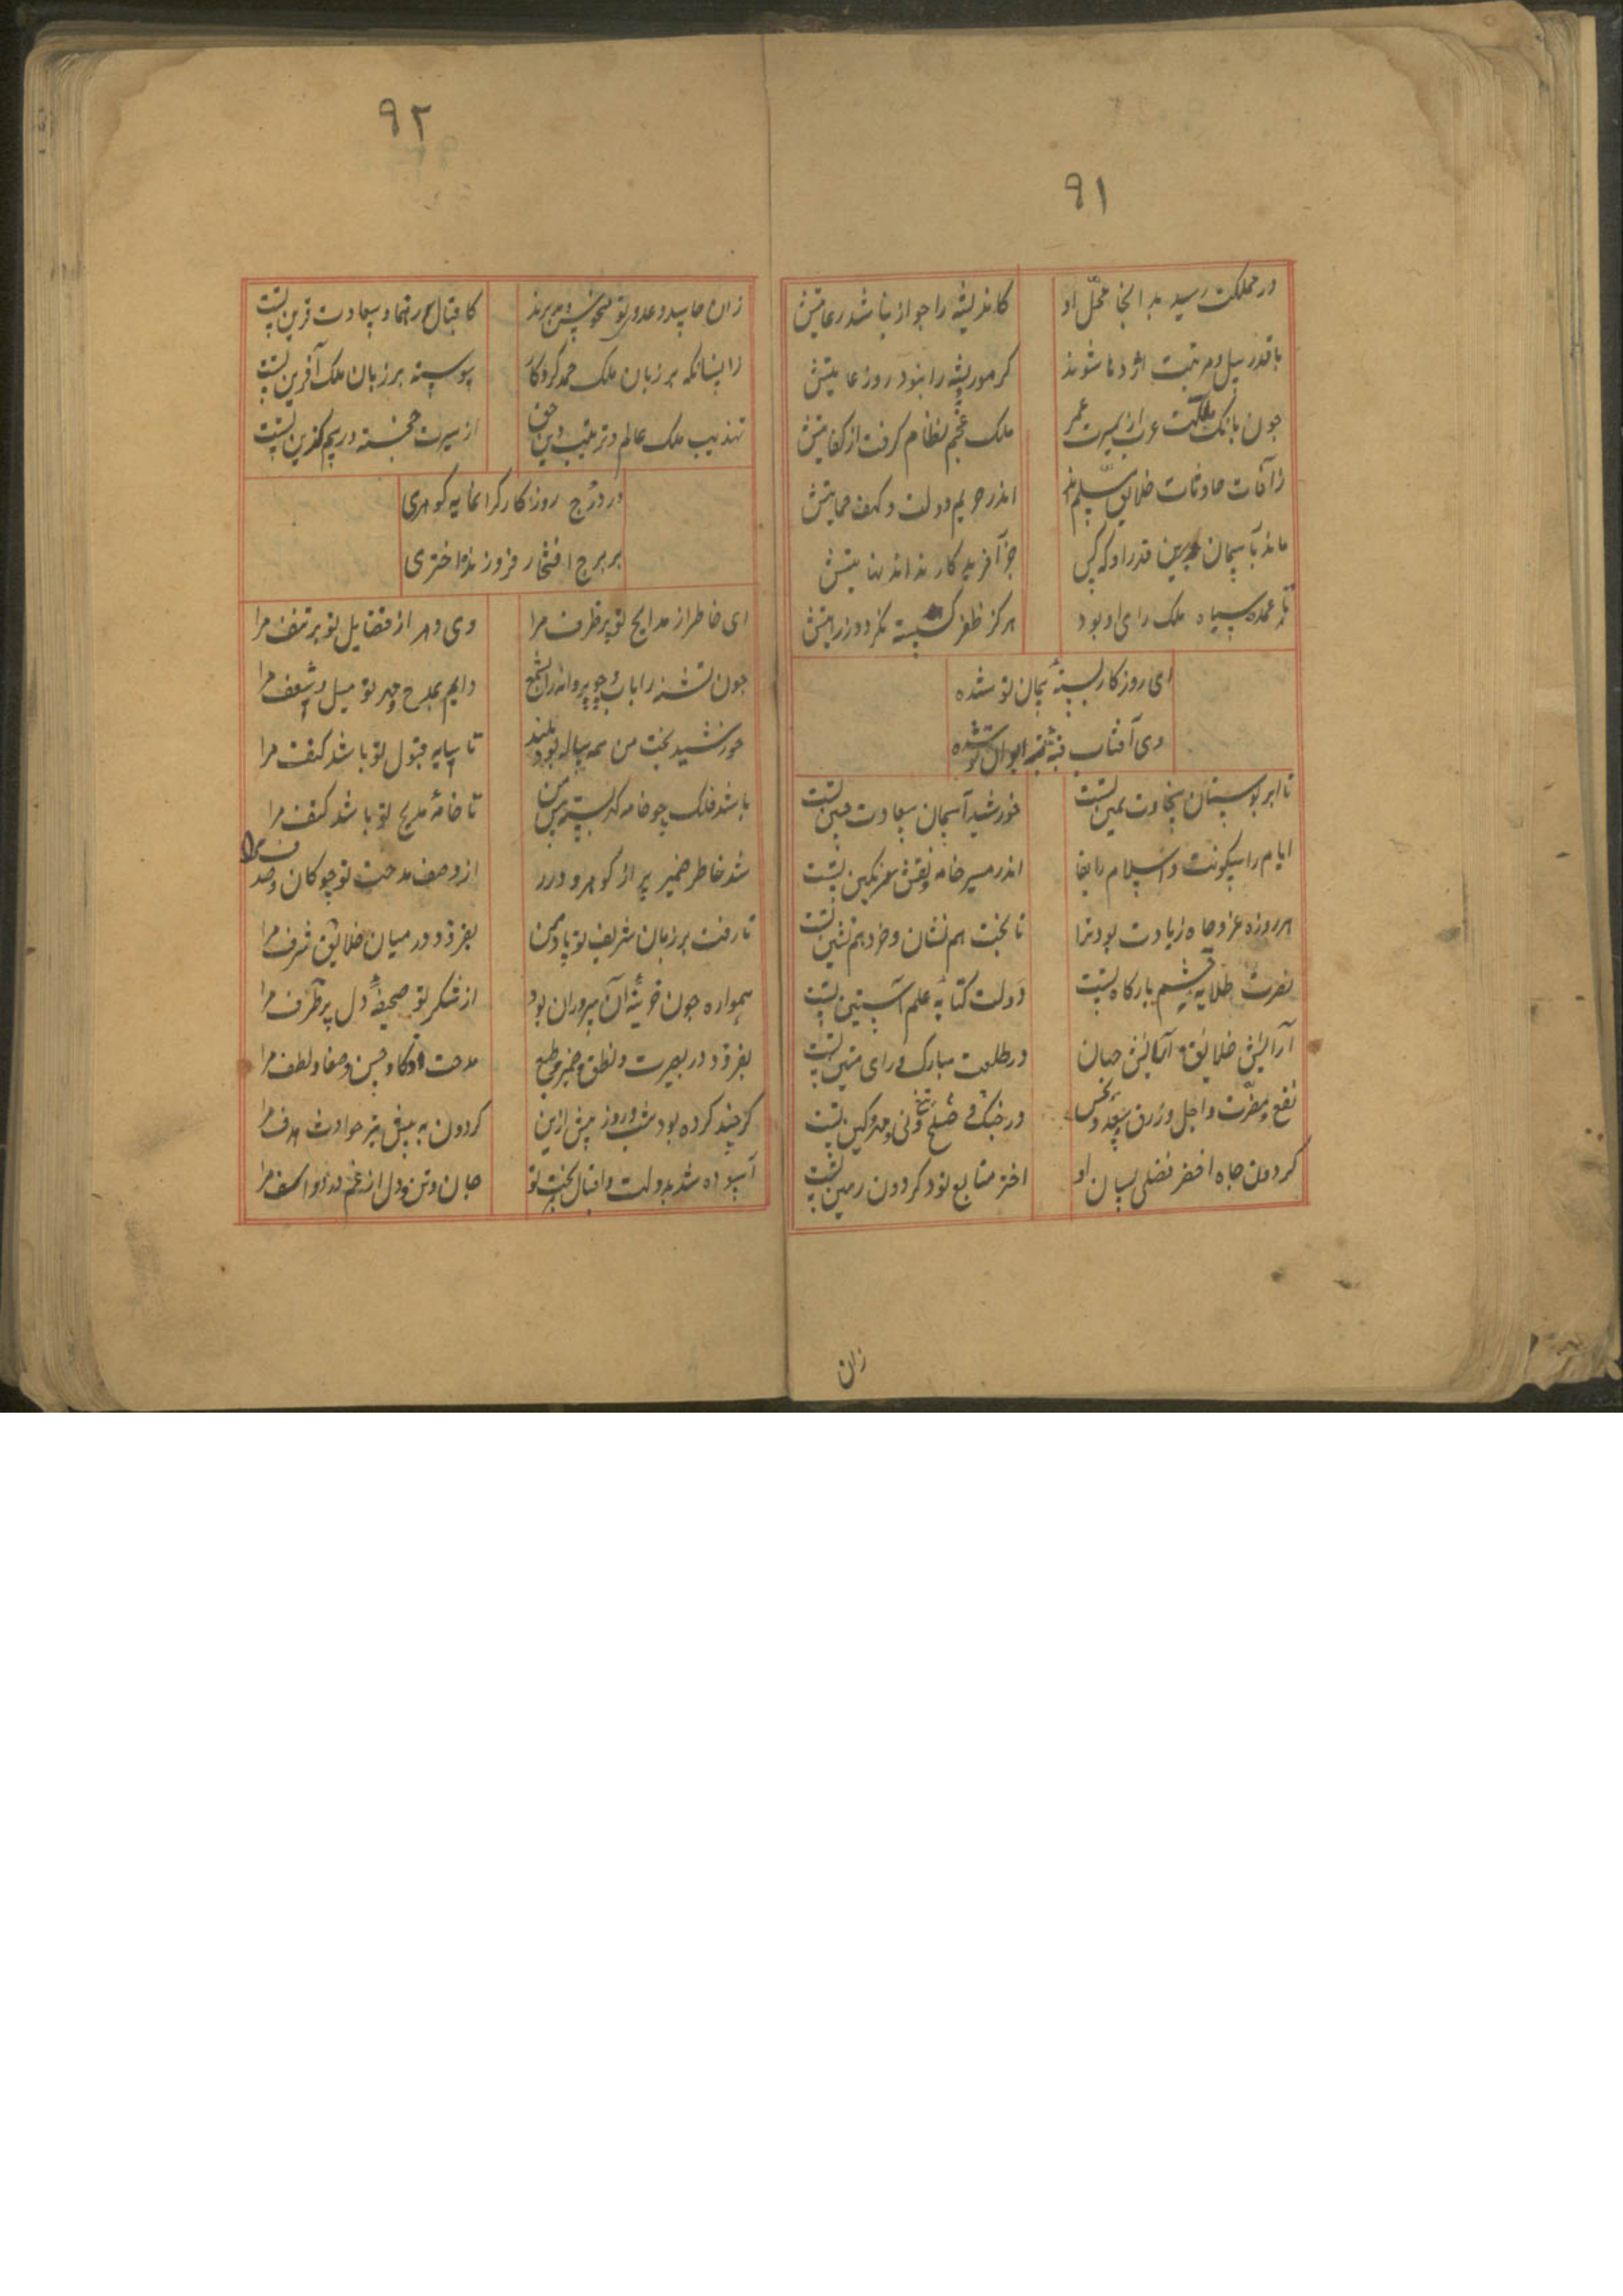 ۹۱
در مملکت رسید بدانجا محل او
کاندیشه را جواز نباشد رعایتش
با قدر پیل و مرتبت اژدها شوند
کر مور پشه را بنود روز عایتش
چون بانک مملکت عرب از سیرت عمر
ملک عجم نظام کرفت از کفایتش
ز آفات حادثات خلایق مسلم‌اند
اندر حریم دولت و کهف حمایتش
ماند بآسمان برین قدر او که کس
جز آفریدکار نداند نهایتش
تا عمده سپاه ملک رای او بود
هرکز ظفر کسسته نکردد ز رایتش
ای روزکار بسته پیمان تو شده
وی آفتاب قبه ایوان تو شده
تا ابر بوستان سخاوت یمین تست
خورشید آسمان سعادت جبین تست
ایام را سکونت و اسلام را بقا
اندر مسیر خامه و نقش نکین تست
هر روزه عز و جاه زیادت بود ترا
تا بخت هم نشان و خرد هم نشین تست
نصرت طلایه حشم بارکاه تست
دولت کتابه علم آستین تست
آرایش خلایق و آسایش جهان
در طلعت مبارک و رای متین تست
نفع و مضرت و اجل و رزق و سعد و نحس
در جنک و صلح و مهر و کین تست
کردون جاه اخضر فضلی بسان او
اختر متابع تو و کردون رهین تست
زان
۹۲
زان حاسد و عدوی تو
کاقبال رهنما و سعادت قرین تست
زانسانکه بر زبان ملک حمد کردکار
پیوسته بر زبان ملک آفرین تست
تهذیب ملک عالم و ترتیب دین حق
از سیرت خجسته و رسم کزین تست
در درج روزکار کرانمایه کوهری
بر برج افتخار فروزنده اختری
ای خاطر از مدایح تو پر ظرف مرا
وی دهر از فضایل تو پر تحف مرا
چون تشنه را بآب و چو پروانه را بشمع
دایم بمدح و مهر تو میل و شعف مرا
خورشید بخت من همه ساله بود بلند
تا سایه قبول تو باشد کنف مرا
باشد فلک چو خامه کمر بسته پیش من
تا خامه مدیح تو باشد بکف مرا
شد خاطر و ضمیر پر از کوهر و درر
از وصف مدحت تو چو کان و صدف مرا
تا رفت بر زبان شریف تو یاد من
بفزود در میان خلایق شرف مرا
همواره چون خزینه آن سروران بود
از شکر تو صحیفه دل پر طرف مرا
بفزود در بصیرت و نطق و ضمیر و طبع
مدحت ذکا و حسن و صفا و لطف مرا
کر چند کرده بود شب و روز پیش ازین
کردون به پیش تیر حوادث هدف مرا
آسوده شد بدولت و اقبال بخت تو
جان و تن و دل از غم و درد و اسف مرا